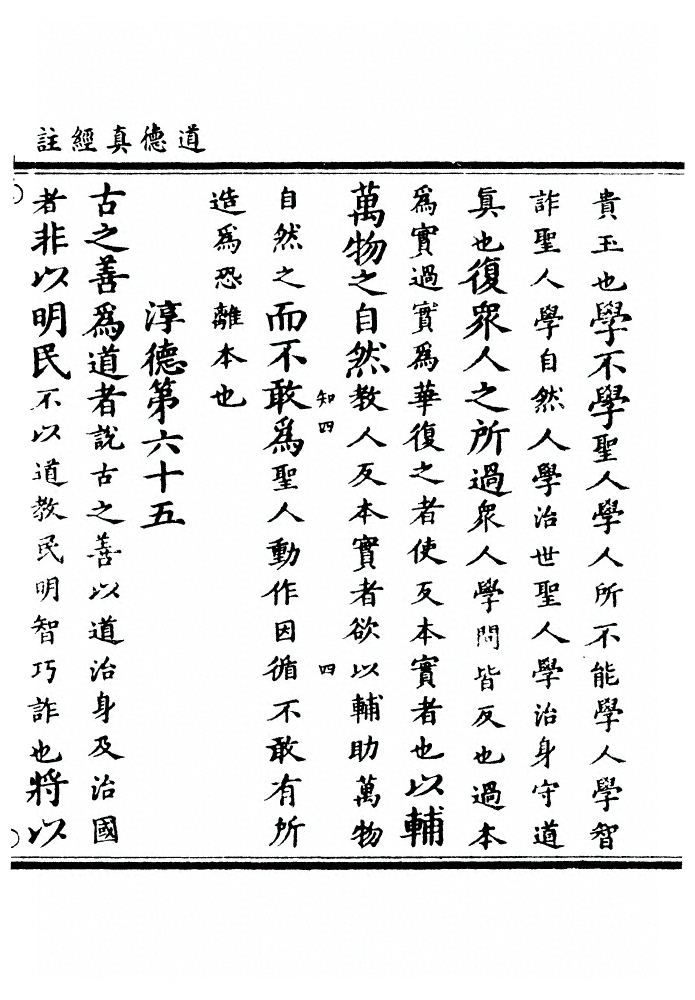 道德真經註
貴玉也學不學聖人學人所不能學人學智
詐聖人學自然人學治世聖人學治身守道
眞也復衆人之所過衆人學問皆反也過本
爲實過實爲華復之者使反本實者也以輔
萬物之自然教人反本實者欲以輔助萬物
知四
四
自然之而不敢爲聖人動作因循不敢有所
造爲恐離本也
淳德第六十五
古之善爲道者說古之善以道治身及治國
者非以明民不以道教民明智巧詐也將以